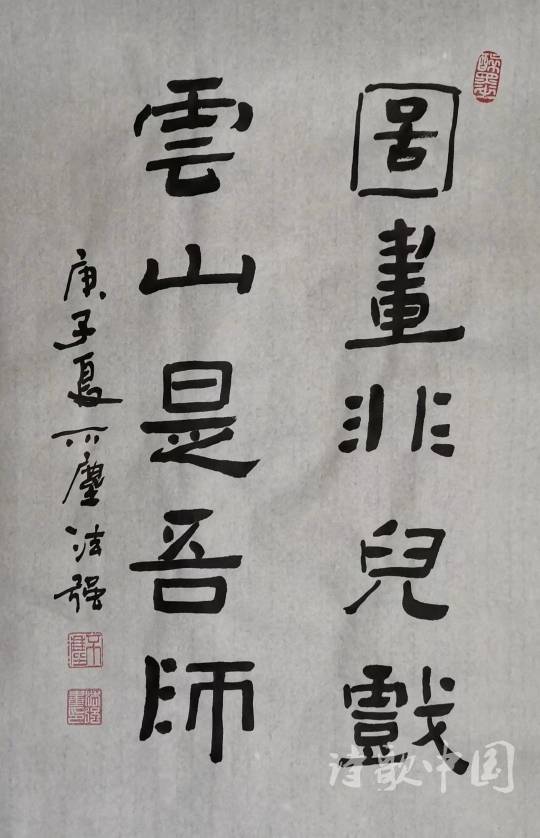 圖畫非兒戲
雲山是吾師
庚子夏不塵法强
诗歌中国